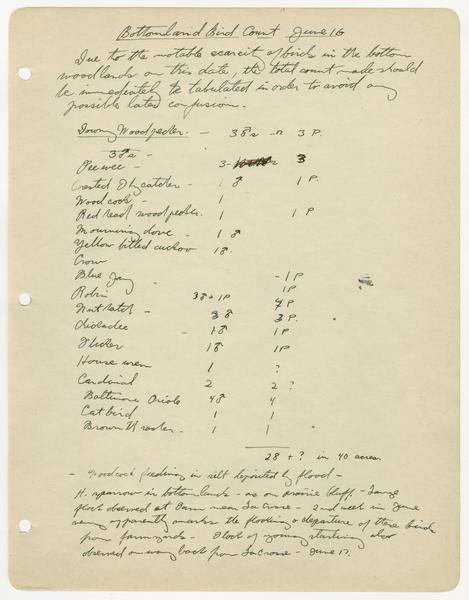 Bottomland Bird Count June 16
Due to the notable scarcity of birds in the bottom
woodlands on this date, the total count made should
be immediately tabulated in order to avoid any
possible later confusion.
Downy Woodpecker. — 3♂s — 3 P.
3♂s —
Peewee — 3 — 3
Crested Flycatcher — 1♂ 1 P.
Woodcock — 1
Red head woodpecker. 1 1 P
Mourning dove — 1♂
Yellow billed cuckoo 1♂.
Crow
Blue Jay - — 1P
Robin 3♂ + 1P 1P
Nuthatch - 3♂ 4P
Chickadee - 1♂ 3 P.
Flicker 1♂ 1P
House wren 1 ?
Cardinal 2 2 ?
Baltimore Oriole 4♂ 4
Catbird 1 1
Brown Thrasher - 1 1
28 + ? in 40 acres
— Woodcock feeding in silt deposited by flood —
H. sparrow in bottomlands - as on prairie bluff. - Large
flock observed at Barn near La Crosse - 2nd week in June
apparently marks the flocking + departure of these birds
from farmyards. Flock of young starlings also
observed on way back from La Crosse - June 17.